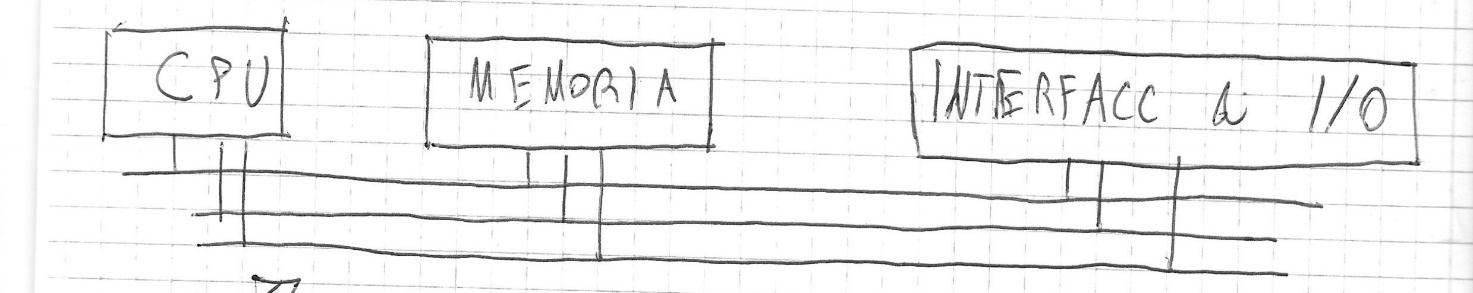 CPU
MEMORIA
INTERFACC di I/O